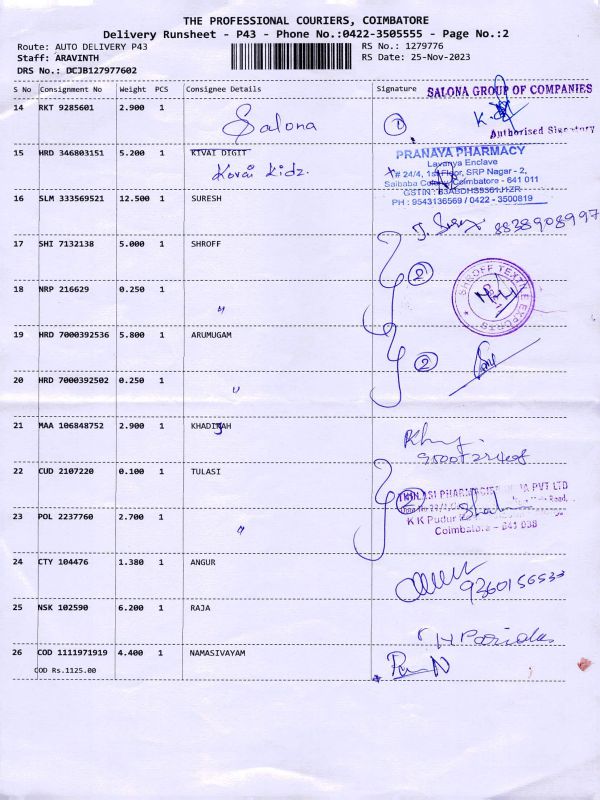 THE PROFESSIONAL COURIERS, COIMBATORE
Delivery Runsheet - P43 - Phone No.:0422-3505555 - Page No.:2
Route: AUTO DELIVERY P43
RS No.: 1279776
Staff: ARAVINTH
RS Date: 25-Nov-2023
DRS No.: DCJB127977602
S No Consignment No Weight PCS Consignee Details Signature
SALONA GROUP OF COMPANIES
14 RKT 9285601 2.900 1 Salona 1
Authorised Signatory
15 HRD 346803151 5.200 1 KIVAI DIGIT
Kovai Kidz.
PRANAYA PHARMACY
Lavanya Enclave
# 24/4, 1st Floor, SRP Nagar - 2,
Saibaba Colony, Coimbatore - 641 011
GSTIN :
PH : 9543136569 / 0422 - 3500819
16 SLM 333569521 12.500 1 SURESH
8838908997
17 SHI 7132138 5.000 1 SHROFF
2
SHROFF TEXTILE EXPORTS
18 NRP 216629 0.250 1 "
19 HRD 7000392536 5.800 1 ARUMUGAM
2
20 HRD 7000392502 0.250 1 "
21 MAA 106848752 2.900 1
22 CUD 2107220 0.100 1 TULASI
2
PVT LTD
23 POL 2237760 2.700 1 "
K K Pudur
Coimbatore - 641 038
24 CTY 104476 1.380 1 ANGUR
25 NSK 102590 6.200 1 RAJA
26 COD 1111971919 4.400 1 NAMASIVAYAM
COD Rs.1125.00